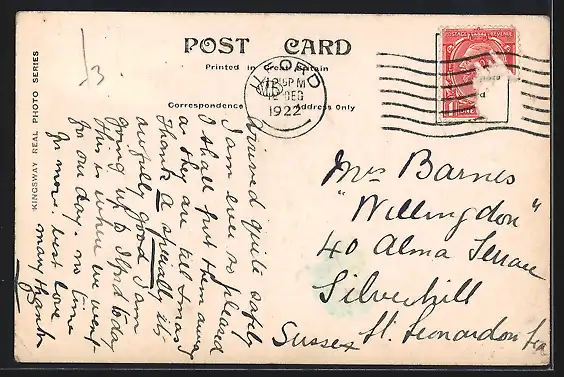 POST CARD
Printed in Great Britain
Correspondence
Address Only
KINGSWAY REAL PHOTO SERIES
/3
ILFORD
12.15 PM
12 DEC
1922
POSTAGE REVENUE
Arrived quite safely
I am ever so pleased
I shall put them away
as they are till Xmas
Thanks A specially its
awfully good I am
going up to Ilford today
this is where we went
for one day. no time
for more. best love
many thanks
Mrs Barnes
"Willingdon"
40 Alma Terrace
Silverhill
St. Leonardon Sea
Sussex